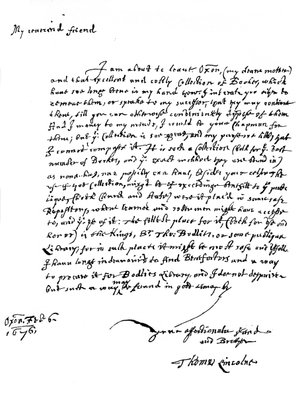 My reverend friend
I am about to leave Oxon, (my deare mother)
and that excellent and costly Collection of Bookes, which
have soe longe beene in my hand
remove them, or speake to my successor, that they may continue
there, till you can otherwise conveniently dispose of them
Had I money to my minde, I would be your Chapman for
them; but ye Collection is soe great, and my purse soe little, that
I cannot compasse it. It is such a Collection
number of Bookes, and
as none has, nor possibly can have, besides your
of yt Collection, might be of exceedinge use to ye publique
(both Church and State) were it plac'd in some safe
Repository, where learned and sober men might have accesse
to, and use of it. The fittest place for it, (both for use and
honor) is the Kings, Sr. Tho. Bodlies, or some publique
Library, for in such places it might be most safe and usefull.
I have longe indeavourd to find Benefactors, and a way
to procure it for Bodlies Library, and I doe not despaire
but such a way may be found in good time by
Oxon. Feb: 6.
1676.
Your affectionate friend
and Brother
Thomas Lincolne